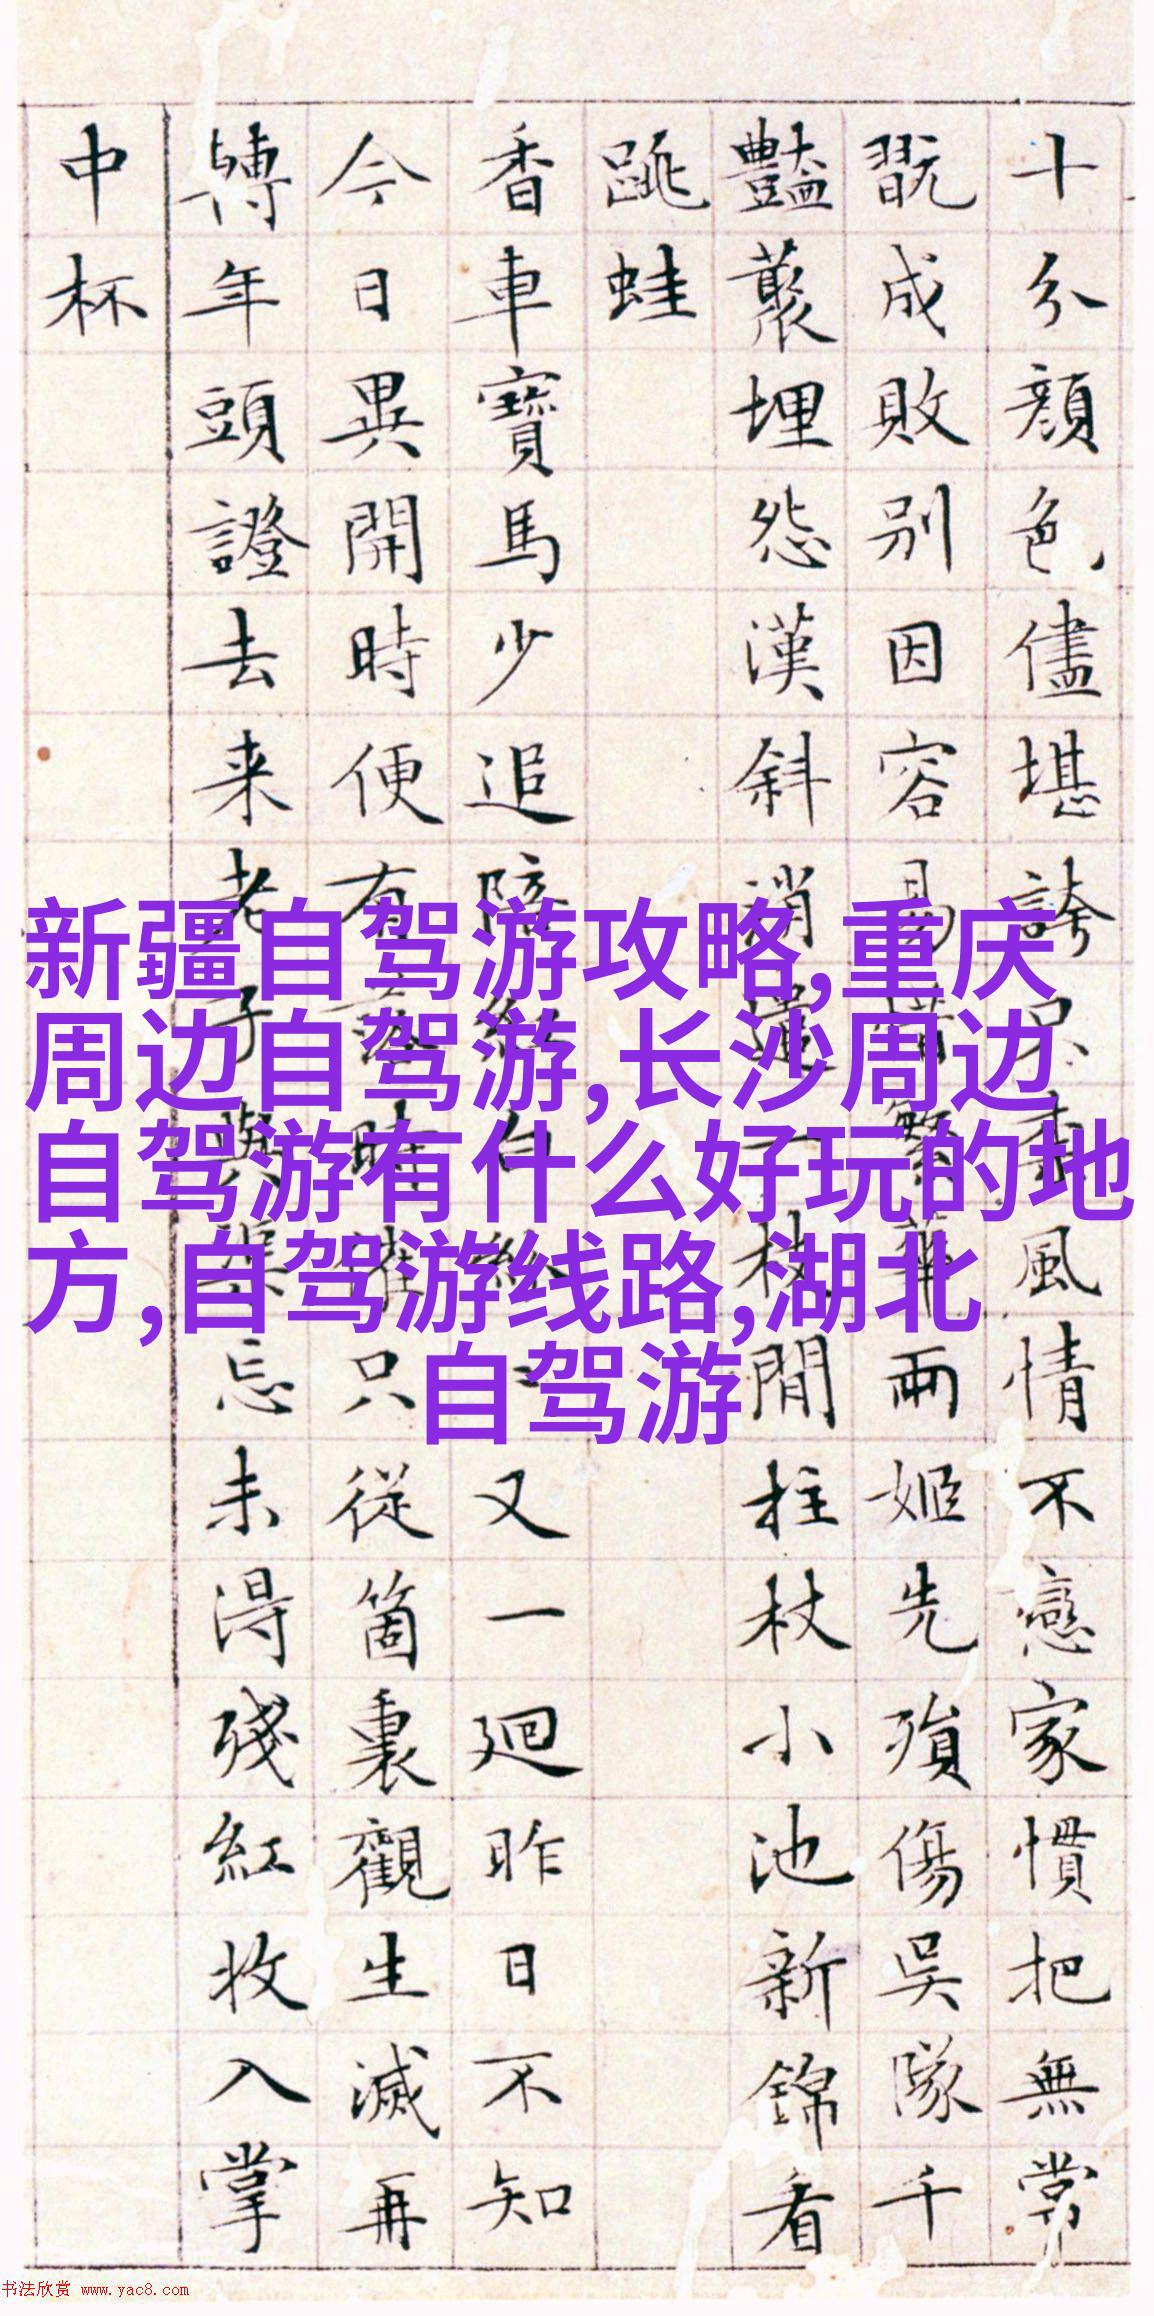 十分顔色儘堪誇只風情不戀家慣把無常
翫成敗别因容易惜繁華兩姬先殞傷吳隊千
豔藂埋怨漢斜消遣一枝閒柱杖小池新錦看
跳蛙
香車寶馬少追陪紅白紛〻又一廻昨日不知
今日異開時便有落時催只從箇裏觀生滅再
轉年頭證去来老子與渠忘未得殘紅收入掌
中杯
新疆自驾游攻略,重庆
周边自驾游,长沙周边
自驾游有什么好玩的地
方,自驾游线路,湖北
自驾游
书法欣赏 www.yac8.com